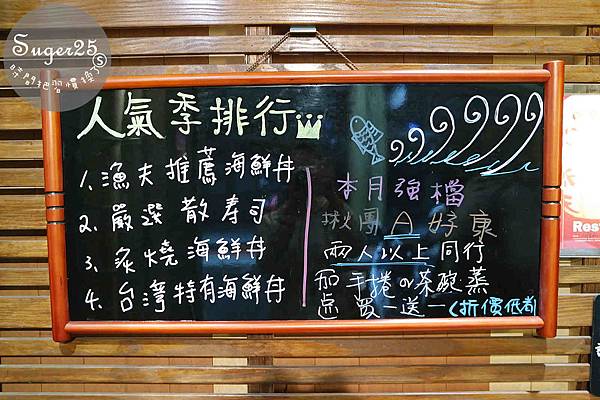 Suger25
時間把習慣換了
人氣季排行
1. 漁夫推薦海鮮丼
2. 嚴選散壽司
3. 炙燒海鮮丼
4. 台灣特有海鮮丼
本月強檔
揪團A好康
兩人以上同行
加手捲or茶碗蒸
區買一送一(折價低者
Rest